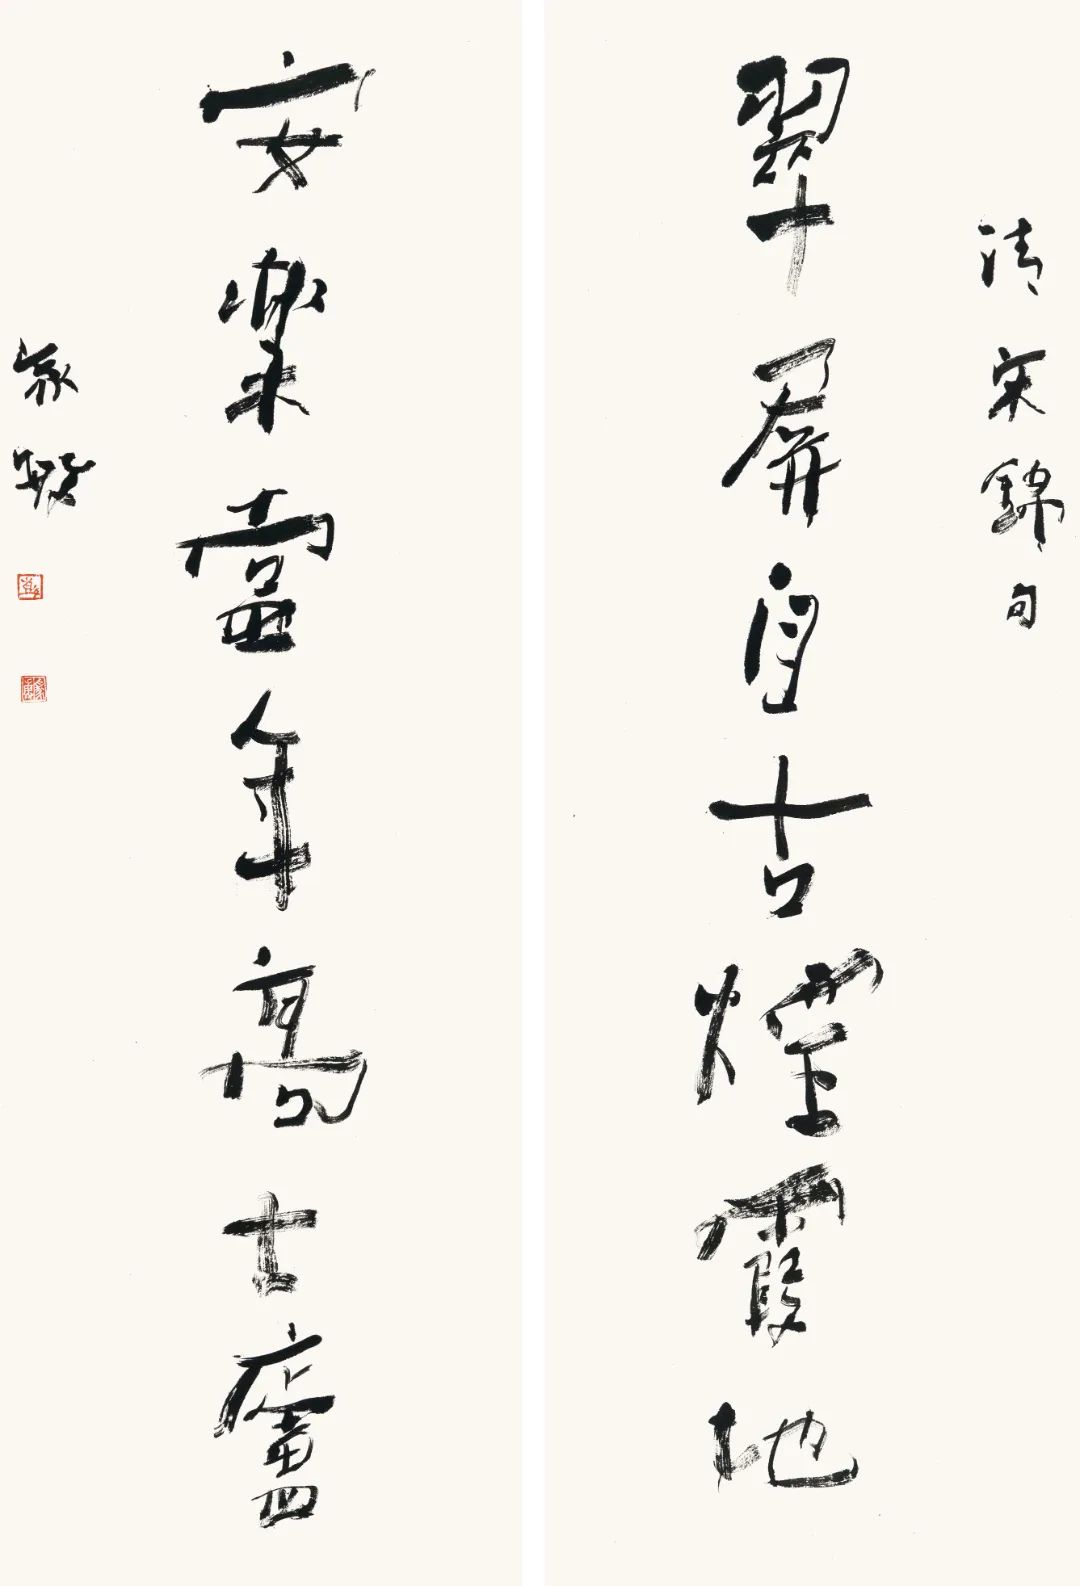 清宋錦句
翠屏自古煙霞地
安樂當年高士廬
家毅